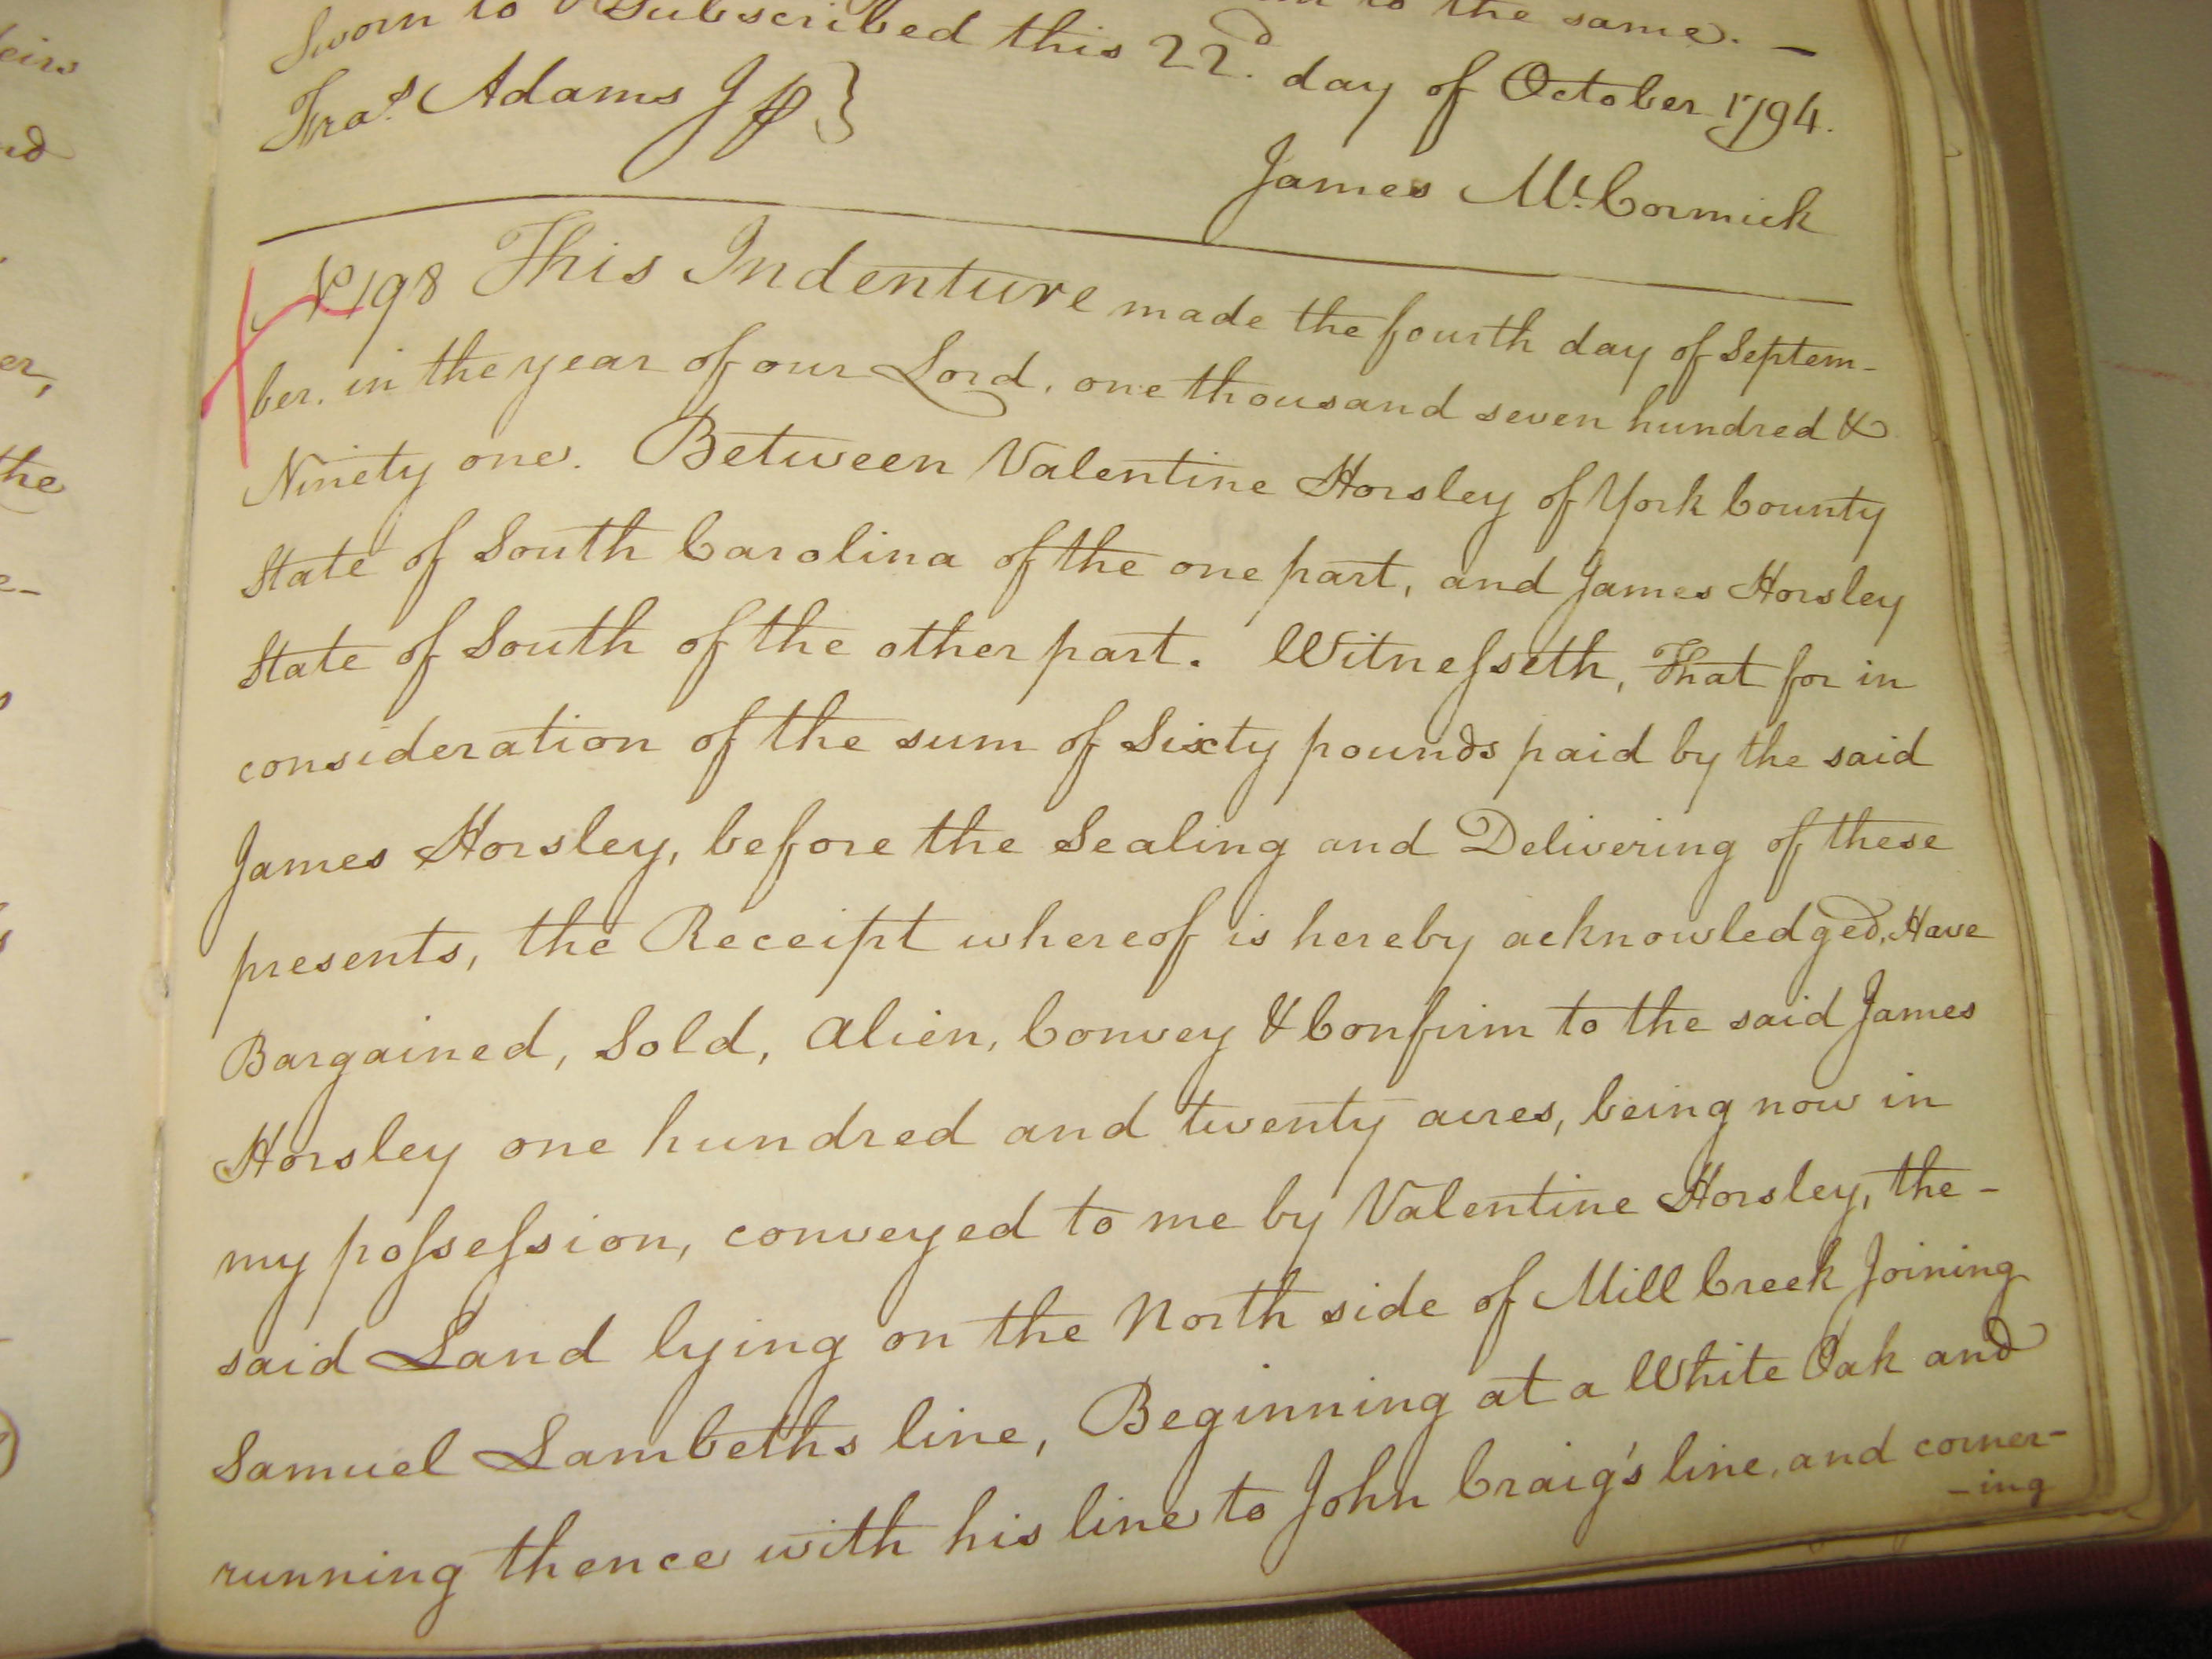 to the same. —
Sworn to & Subscribed this 22.d day of October 1794.
Fra.s Adams J P }
James Mc.Cormick
No 198 This Indenture made the fourth day of Septem-
ber. in the year of our Lord, one thousand seven hundred &
Ninety one. Between Valentine Horsley of York County
State of South Carolina of the one part, and James Horsley
State of South of the other part. Witnesseth, That for in
consideration of the sum of Sixty pounds paid by the said
James Horsley, before the Sealing and Delivering of these
presents, the Receipt whereof is hereby acknowledged, Have
Bargained, Sold, Alien, Convey & Confirm to the said James
Horsley one hundred and twenty acres, being now in
my possession, conveyed to me by Valentine Horsley, the -
said Land lying on the North side of Mill Creek Joining
Samuel Lambeths line, Beginning at a White Oak and
running thence with his line to John Craig's line, and corner-
-ing